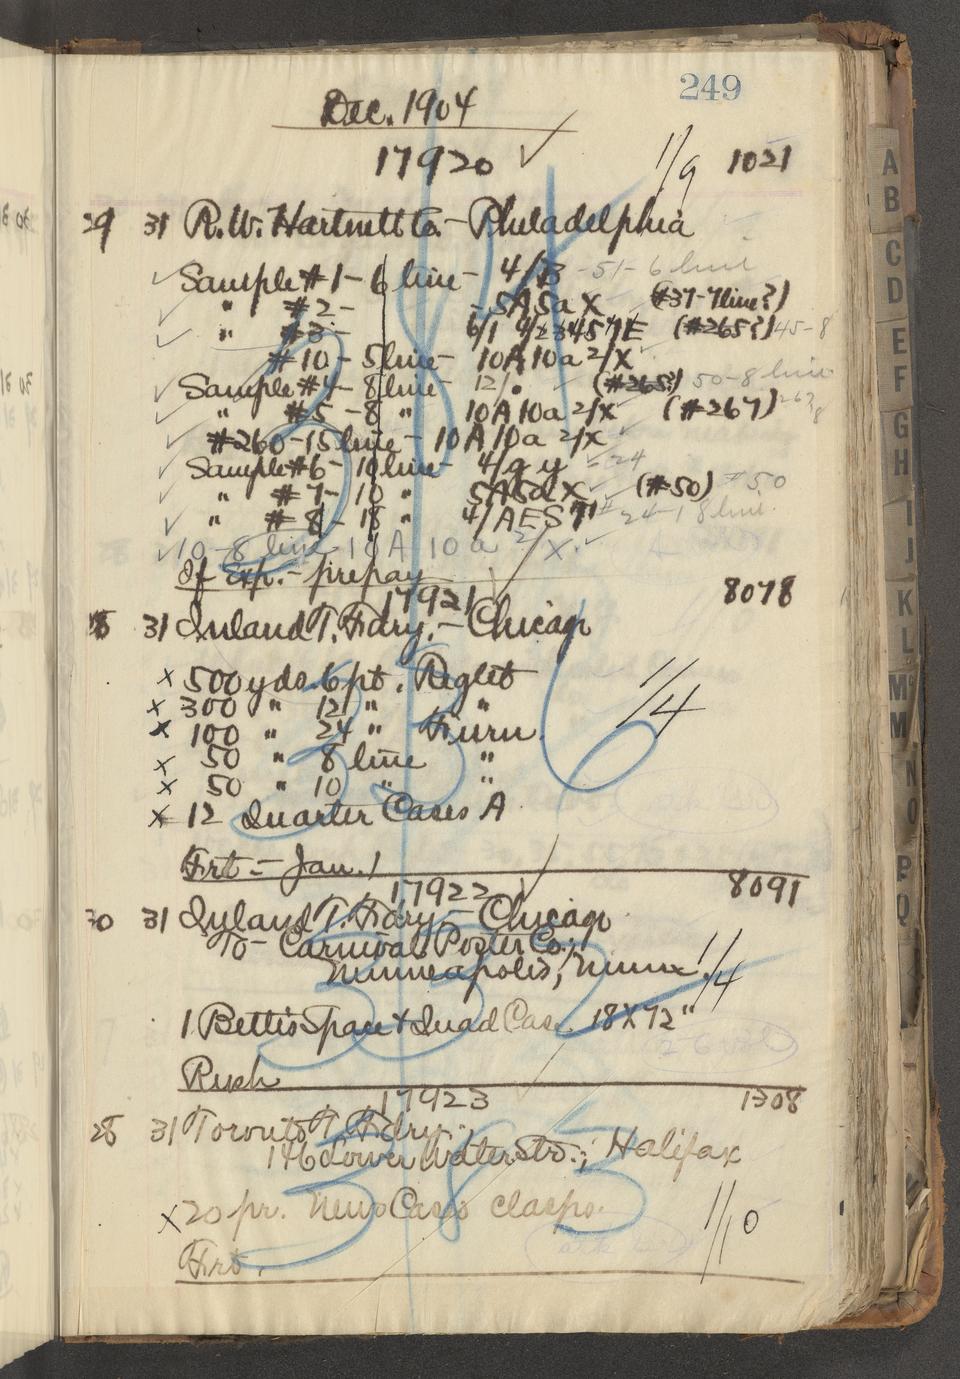 249
Dec. 1904
17920 1/9 1021
29 31 R.W. Hartnett Co. - Philadelphia
Sample #1 - 6 line - 4/ - 51 - 6 line
" #2 - - 5A5a X (#37-7line?)
" #3 - 6/1 9/2 3457E (#265?) 45-8
#10 - 5 line - 10A 10a 2/X
Sample #4 - 8 line 12/. (#265?) 50-8 line
" #5 - 8 " 10A 10a 2/X (#267) 267
#260 - 15 line - 10A 10a 2/X
Sample #6 - 10 line - 4/g y 24
" #7 - 10 " 5A5a X (#50) #50
" #8 - 18 " 4/AES 24-18 line
10-8 line 10A 10a 2/X
If Exp. - prepay
17921 8078
31 Inland T. Fdry. - Chicago
X 500 yds. 6 pt. Reglet 1/4
X 300 " 12 " "
X 100 " 24 " Furn.
X 50 " 8 line "
X 50 " 10 " "
X 12 Quarter Cases A
Frt - Jan. 1
17922 8091
30 31 Inland T. Fdry - Chicago
To - Carnival Poster Co.,
Minneapolis, Minn. 1/4
1 Bettis Space & Quad Case 18X72"
Rush
17923 1308
28 31 Toronto T. Fdry.,
146 Lower Water Str.; Halifax
X 20 pr. News Cases clasps. 1/10
Frt.
A
B
C
D
E
F
G
H
I
J
K
L
M
M
N
O
P
Q